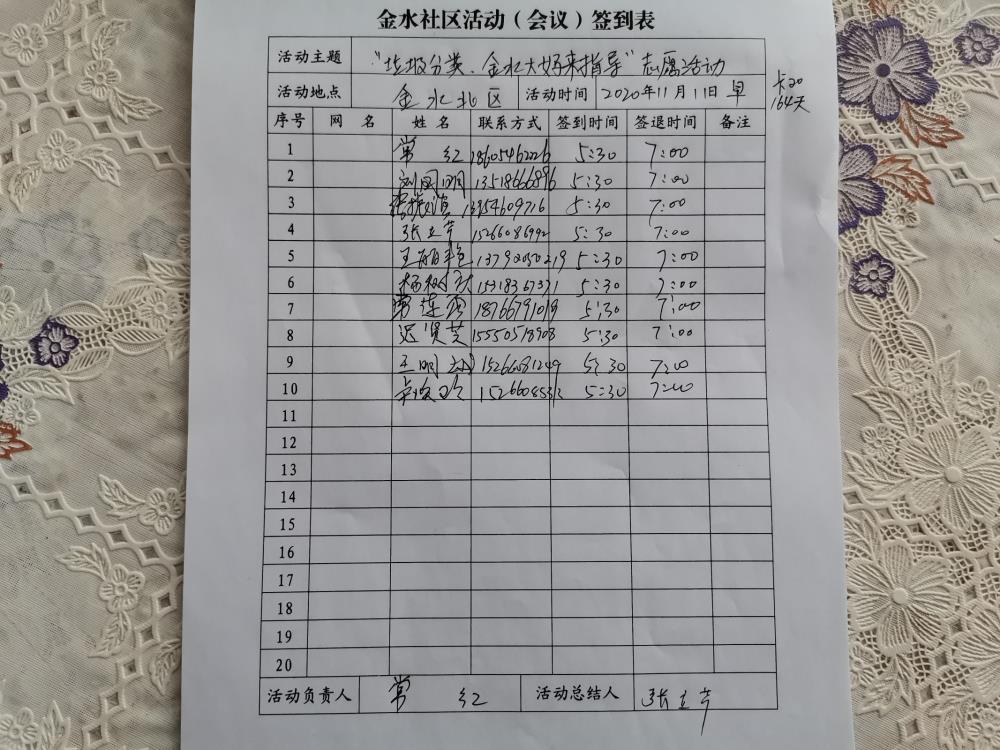 金水社区活动（会议）签到表
活动主题 "垃圾分类、金水大好来指导"志愿活动
活动地点 金水北区 活动时间 2020年11月11日 早
164天
序号 网 名 姓 名 联系方式 签到时间 签退时间 备注
1 常 红 18605462226 5:30 7:00
2 刘国明 13518666896 5:30 7:00
3 5:30 7:00
4 张立芹 15266086992 5:30 7:00
5 13792050219 5:30 7:00
6 15318367371 5:30 7:00
7 18766791019 5:30 7:00
8 迟贤芝 15550518908 5:30 7:00
9 王明 15266081249 5:30 7:00
10 5:30 7:00
11
12
13
14
15
16
17
18
19
20
活动负责人 常 红 活动总结人 张立芹